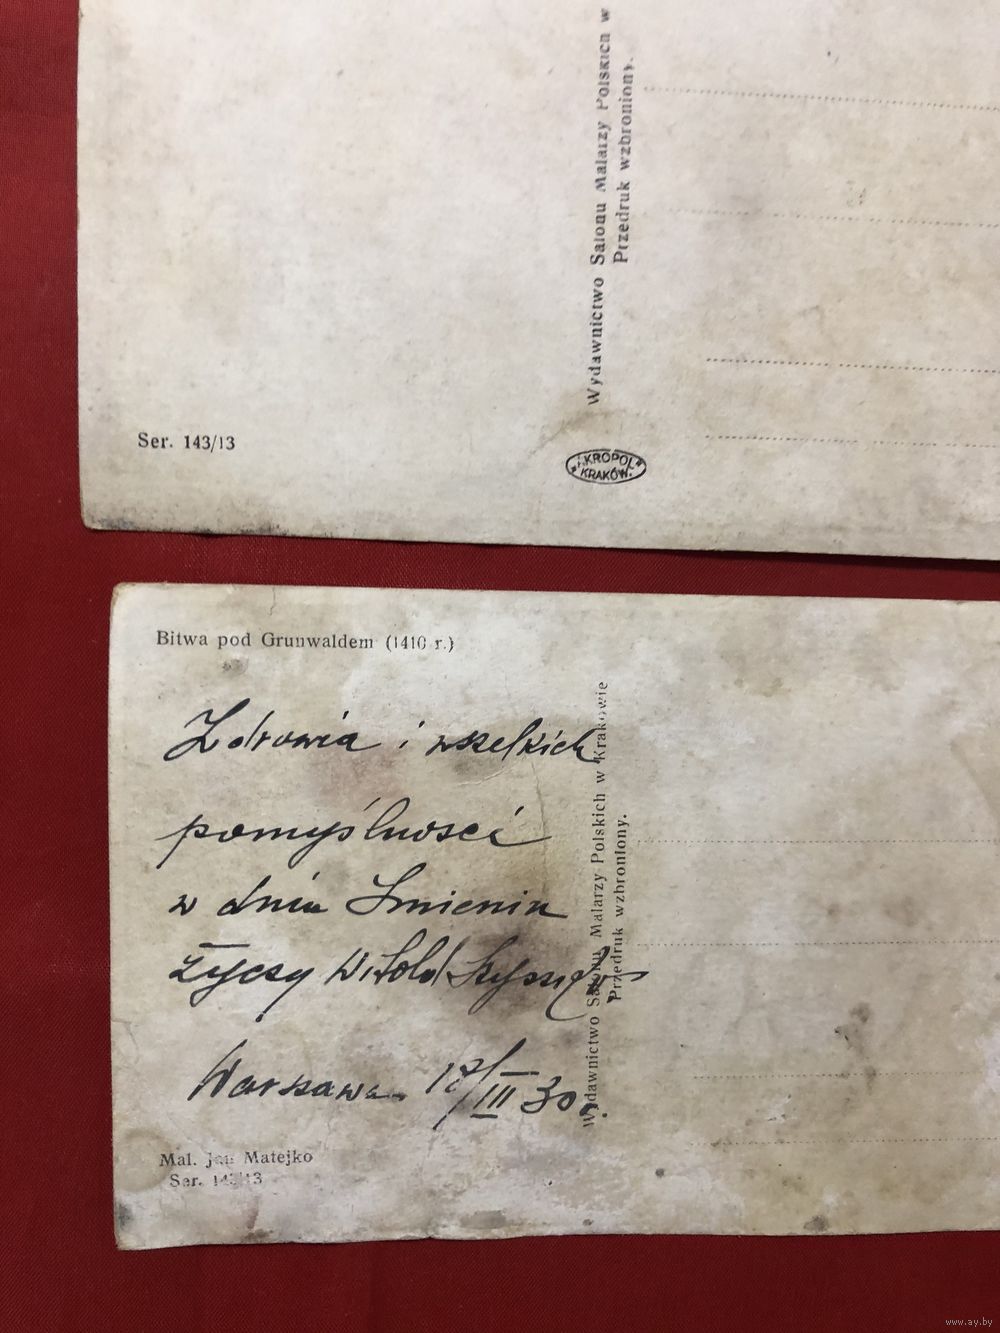 Wydawnictwo Salonu Malarzy Polskich w
Przedruk wzbroniony.
Ser. 143/13
"AKROPOL"
KRAKÓW.
Bitwa pod Grunwaldem (1410 r.)
Zdrowia i wszelkich
pomyślności
w dniu Imienin
życzy Witold
Warszawa 17/III 30 r.
Mal. Jan Matejko
Ser. 143/13
Wydawnictwo Salonu Malarzy Polskich w Krakowie
Przedruk wzbroniony.
www.ay.by